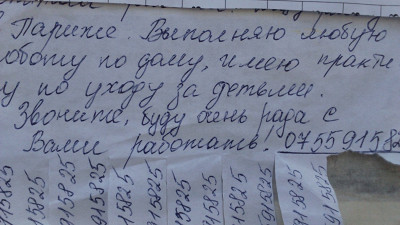 Париже. Выполняю любую
работу по дому, имею практи
ку по уходу за детьми.
Звоните, буду очень рада с
Вами работать. 0755915825
915825
915825
915825
915825
915825
915825
915825
915825